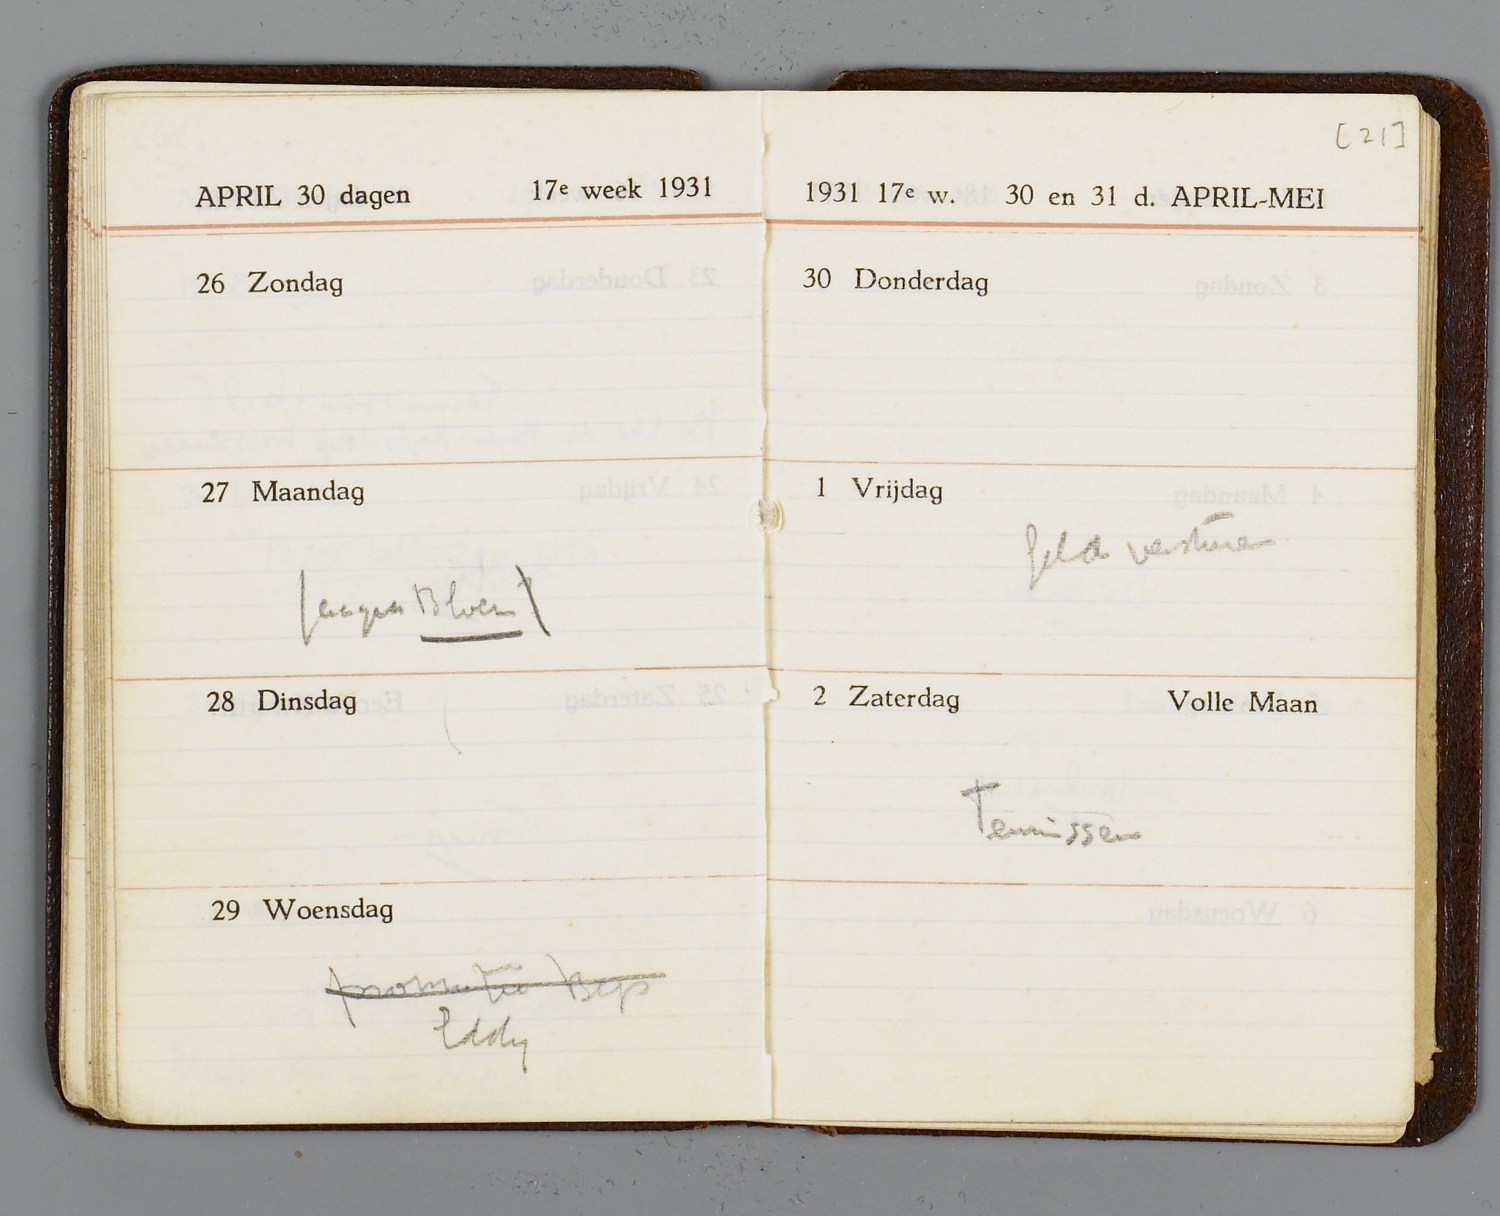 APRIL 30 dagen 17e week 1931
26 Zondag
27 Maandag
Bloem
28 Dinsdag
29 Woensdag
Eddy
[21]
1931 17e w. 30 en 31 d. APRIL-MEI
30 Donderdag
1 Vrijdag
Geld versturen
2 Zaterdag Volle Maan
Tennissen